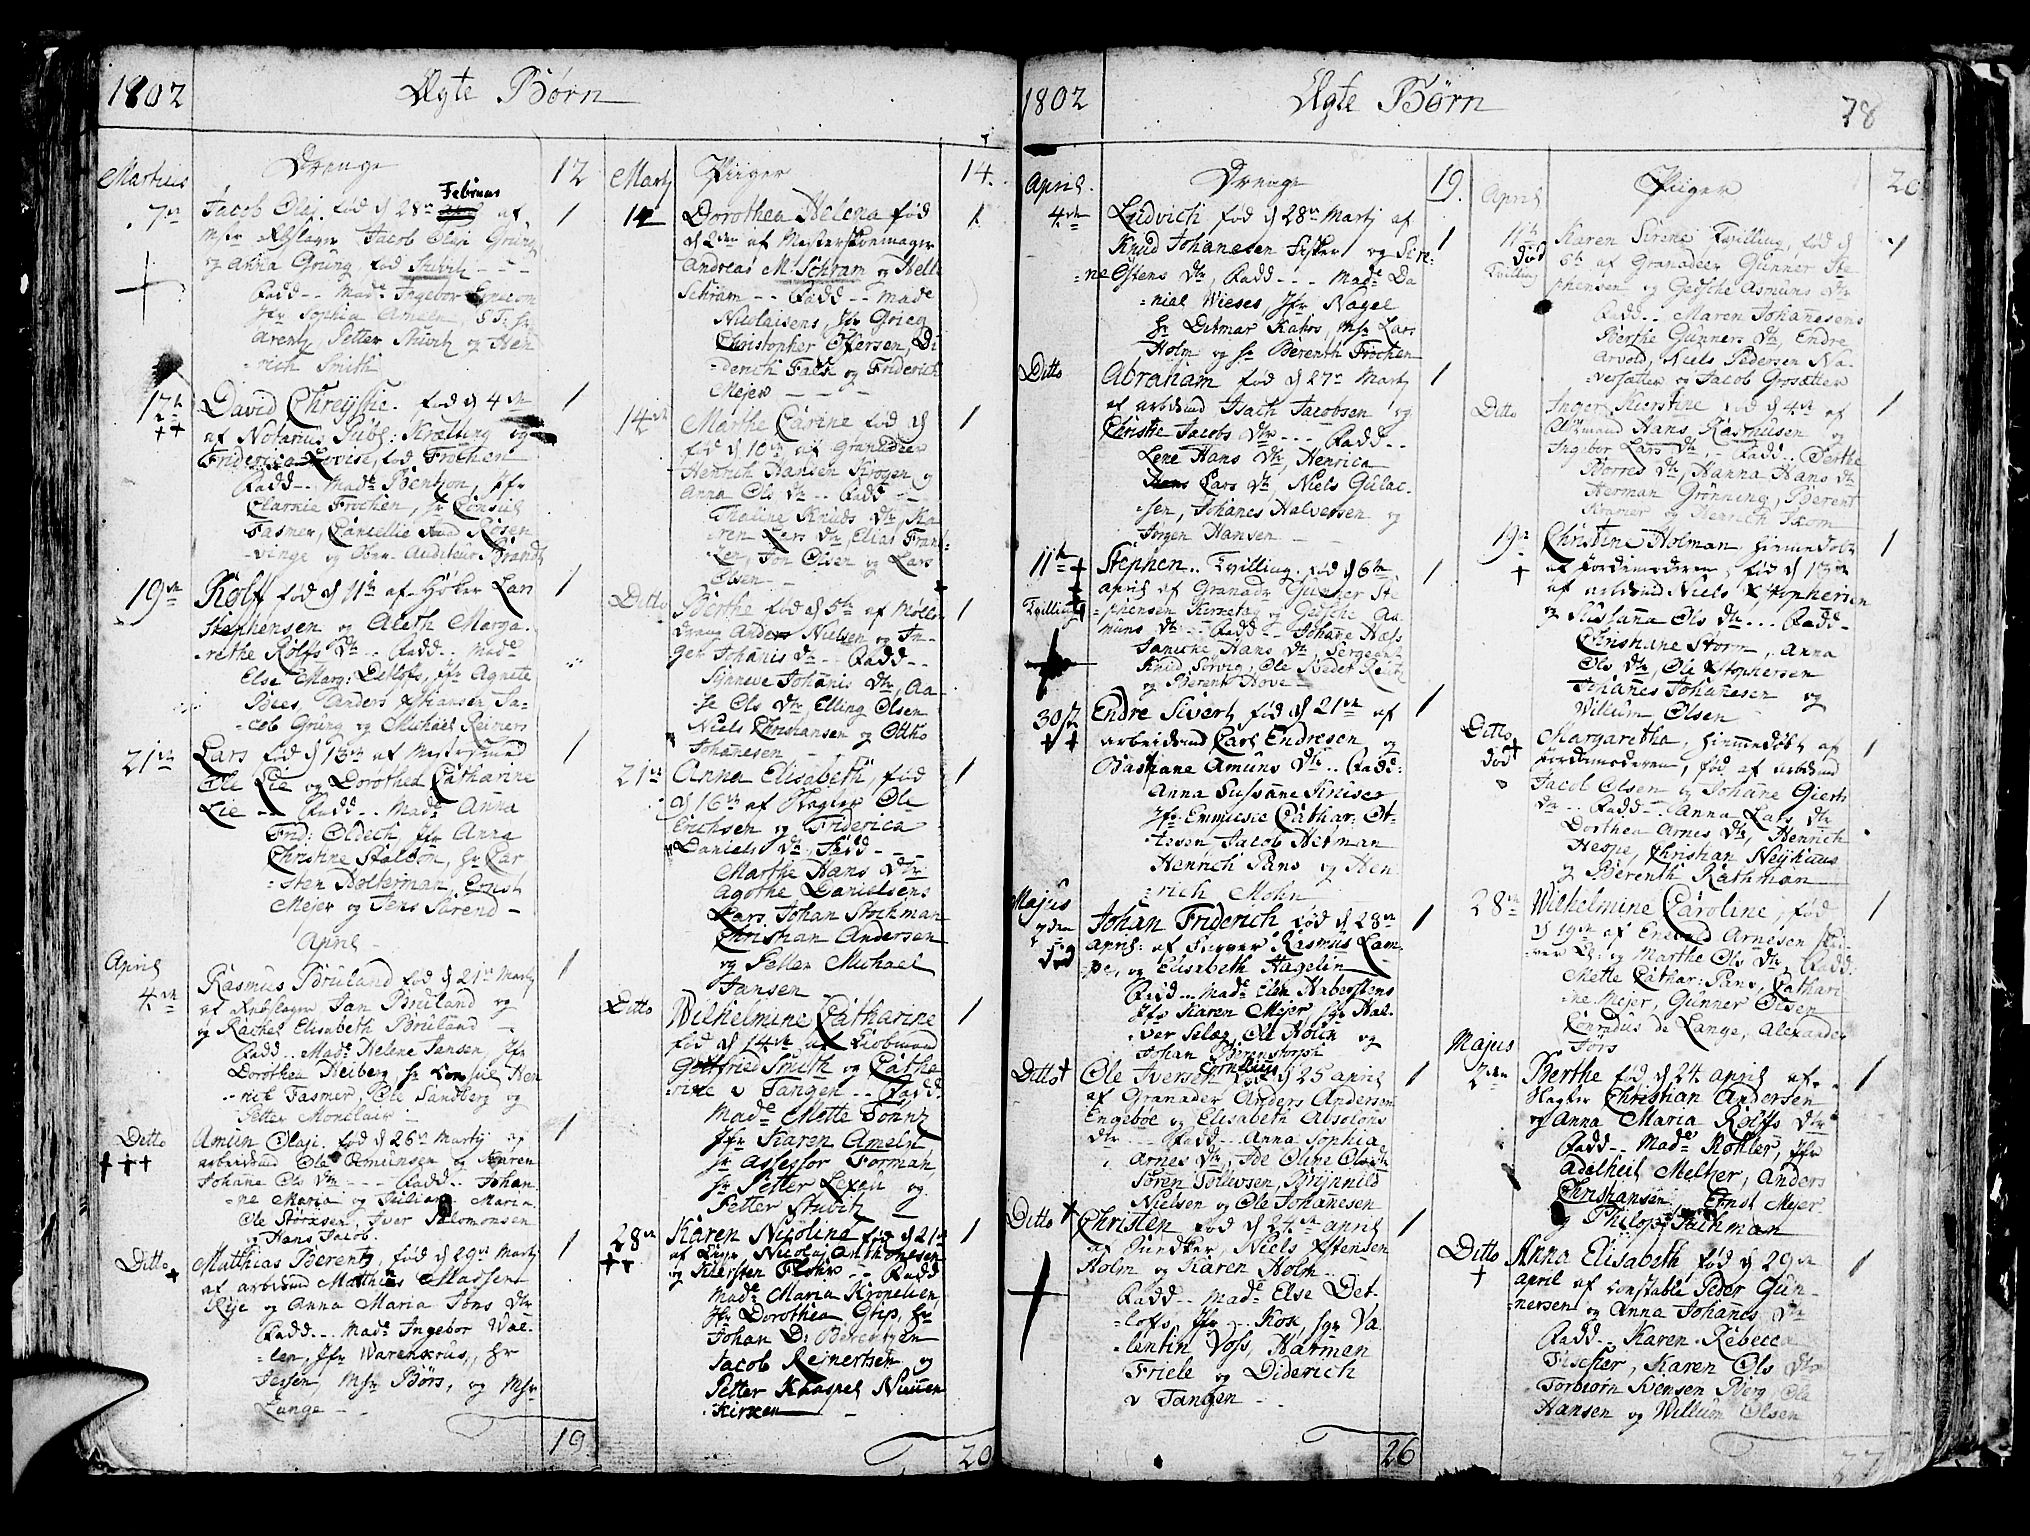 1802 Ægte Børn
Martius Drenge 12
7de Jacob Olaj. fød d 28de Februar af 1
Jacob Olaj Grüng
og Anna Grüng, fød Stubitz
Fadd -- Made Ingebor
Jfr Sophia Ameln, S T: hr
Arentz Petter Stubitz og Hen
rich Smith
17de David Chreystie. fød d 4de 1
af Notarius Publ: Krælling og
Friderica Lovise, fød Frochen
Fadd -- Made Bentzon, Jfr
Clarkie Frochen, hr Consul
Fasmer, Cancellie Raad Rosen
vinge og Auditeur Brandt
19de Rolff fød d 11te af Høker Lars 1
Stephensen og Aleth Marga
rethe Rolfs Dtr -- Fadd -- Made
Else Marg: Detlofs, Jfr Agnete
Bees, Anders Xstiansen Ja
cob Grüng og Michael Reiners
21de Lars fød d 13de af 1
Ole Lie og Dorothea Catharine
Lie -- Fadd -- Made Anna
Frid: Oldech, Jfr Anna
Christine Stalton, hr Car
sten Holterman, Ernst
Mejer og Jens Sørend
April
April Rasmus Bruland fød d 21de Martj 1
4de af Jan Bruland og
og Rachel Elisabeth Bruland
Fadd -- Made Helene Jansen, Jfr
Dorothea Heiberg, hr Consul Hen
rich Fasmer, Ole Sandberg og
Petter Monclair
Ditto Amun Olaj. fød d 26de Martj af 1
arbeidsmd Ole Amunsen og Karen
Johane Ols Dtr -- Fadd -- Johan
ne Maria og Juliane Maria
Ole Størksen, Iver Salomonsen
og Hans Jacob
Ditto Matthias Berentz, fød d 29de Martj 1
af arbeidsmd Matthias Massen
Rye og Anna Maria Jons Dtr
Fadd -- Made Ingebor Wal
len, Jfr Warenkrus, hr
Jessen, Msr Børs, og Msr
Lange
19
Martj Piiger 14.
14 Dorothea Helena fød 1
d 2den af Mester Skomager
Andreas M. Schram og Helle
Schram -- Fadd -- Made
Nicolaisens, Jfr Grieg
Christopher Ifersen, Di
derich Falck og Friderich
Mejer
14de Marthe Carine fød d 1
fød d 10de af Granadeer
Henrich Hansen og
Anna Ols Dtr -- Fadd --
Thaline Knuds Dtr, Ka
ren Lars Dtr, Elias Fran
zen, Jon Olsen og Lars
Olsen
Ditto Berthe fød d 5te af Møller 1
dreng Anders Nielsen og In
ger Johanis Dtr -- Fadd --
Synneve Johanis Dtr, Aa
se Ols Dtr Elling Olsen
Niels Christiansen og Ottho
Johannesen
21de Anna Elisabeth, fød 1
d 16de af Slagter Ole
Erichsen og Friderica
Daniels Dtr, Fadd
Marthe Hans Dtr
Agothe Danielsens
Lars, Johan Stochman
Christian Andersen
og Petter Michael
Jansen
Ditto Wilhelmine Catharine 1
fød d 14de af Kiøbmand
Gottfried Smith og Catha
rine v Tangen -- Fadd
Made Mette Sontz
Jfr Karen Ameln
hr Assessor Forman
hr Petter Lexau og
Petter Stubitz
28de Karen Nicoline fød d 21de 1
af Nicolaj Anthonesen
og Kiersten Flohrs -- Fadd
Made Maria Kronelien
Jfr Dorothea Grip, hr
Johan D: Berentzen
Jacob Reinertsen og
Petter Kaaspel Nimen
Kirken
20
1802 Ægte Børn 78
April. Drenge 19.
4de Ludvich fød d 28de Martj af 1
Knud Johannesen Fisker og Sire
ne Ostens Dtr, Fadd -- Made Da
nial Wieses, Jfr Nagel
hr Ditmar Kahrs, Msr Lars
Holm og hr Berenth Frochen
Ditto Abraham fød d 27de Martj 1
af arbeidsmd Isach Jacobsen og
Christie Jacobs Dtr -- Fadd --
Lene Hans Dtr, Henrica
Lars Dtr, Niels Gulac
sen, Johanes Halversen og
Jørgen Hansen
11te Stephen.. Tvilling. fød d 6te 1
Tvilling April af Granadr Gunner Ste
phensen og Gedsche Aa
muns Dtr -- Fadd -- Johane Hass
Janicke Hans Dtr, Sergeant
Knud Sorvig, Ole Reder
og Berent Hove
30de Endre Sivert fød d 21de af 1
arbeidsmd Carl Endresen og
Bastiane Amuns Dtr -- Fadd:
Anna Sussane
Jfr Emmicke Cathar: Ot
tesen, Jacob Herman
Henrich Pans og Hen
rich Mohn
Majus
2den Johan Friderich fød d 28de 1
død April: af Rasmus Lam
pe, og Elisabeth Hagelin
Fadd -- Made Elen Haberstens
Jfr Karen Mejer Sgr Hal
vor Selæg, Ole Hoick og
Johan Berenstorph
Ditto Ole Iversen Cornelius fød d 25 April 1
af Granader Anders Andersen
Engebøe og Elisabeth Absolons
Dtr -- Fadd -- Anna Sophia
Arnes Dtr, Ide Oline Ols Dtr
Soren Tollevsen, Brynnild
Nielsen og Ole Johannesen
Ditto Christen fød d 24de April 1
af Niels Xstensen
Holm og Karen Holm
Fadd -- Made Else Det
lofs, Jfr -- Kox, Sgr Va
lentin Voss, Harmen
Friele og Diderich
v Tangen
26
April Piiger 20
11te død Tvilling Karen Sirene Tvilling, fød d 1
6te af Granadeer Gunner Ste
phensen og Gedsche Asmuns Dtr
Fadd -- Maren Johannesens
Berthe Gunners Dtr, Endre
Arvold, Niels Pedersen Na
versætter og Jacob Grosætter
Ditto Inger Kierstine fød d 4de af 1
Hans Rasmusen og
Ingebor Lars Dtr, Fadd -- Berthe
Børres Dtr, Hanna Hans Dtr
Herman Grønning, Berent
Kramer og Henrich Thom
19de Christine Holman, hiemmedøbt 1
af Jordemoderen, fød d 13de
af arbeidsmd Niels Xstophersen
og Sussana Ols Dtr -- Fadd --
Christiane Storm, Anna
Ols Dtr, Ole Xstophersen
Johannes Johannesen og
Willum Olsen
Ditto død Margaretha, hiemmedøbt af 1
Jordemoderen, fød af arbeidsmd
Jacob Olsen og Johane Gierts
Dtr -- Fadd -- Anna Lars Dtr
Dorthea Arnes Dtr, Henrich
Hespe, Christian Neyhuus
og Berenth Rathman
28de Wilhelmine Caroline, fød 1
d 19de af Enevold Arnesen
og Marthe Ols Dtr -- Fadd:
Mette Cathar: Pans, Cathari
ne Mejer, Gunner Olsen
Conradus de Lange, Alexander
Børs
Majus
2den Berthe fød d 24 April af 1
Slagter Christian Andersen
og Anna Maria Rolffs Dtr
Fadd -- Made Kohler, Jfr
Adelheit Meltzer, Anders
Christiansen, Ernst Mejer
og Philop Tuchman
Ditto Anna Elisabeth fød d 29de 1
April af Constable Peder Gun
nersen og Anna Johanes Dtr
Fadd -- Karen Rebecca
Fischer, Karen Ols Dtr
Torbiørn Svensen Berg, Ole
Hansen og Willum Olsen
27